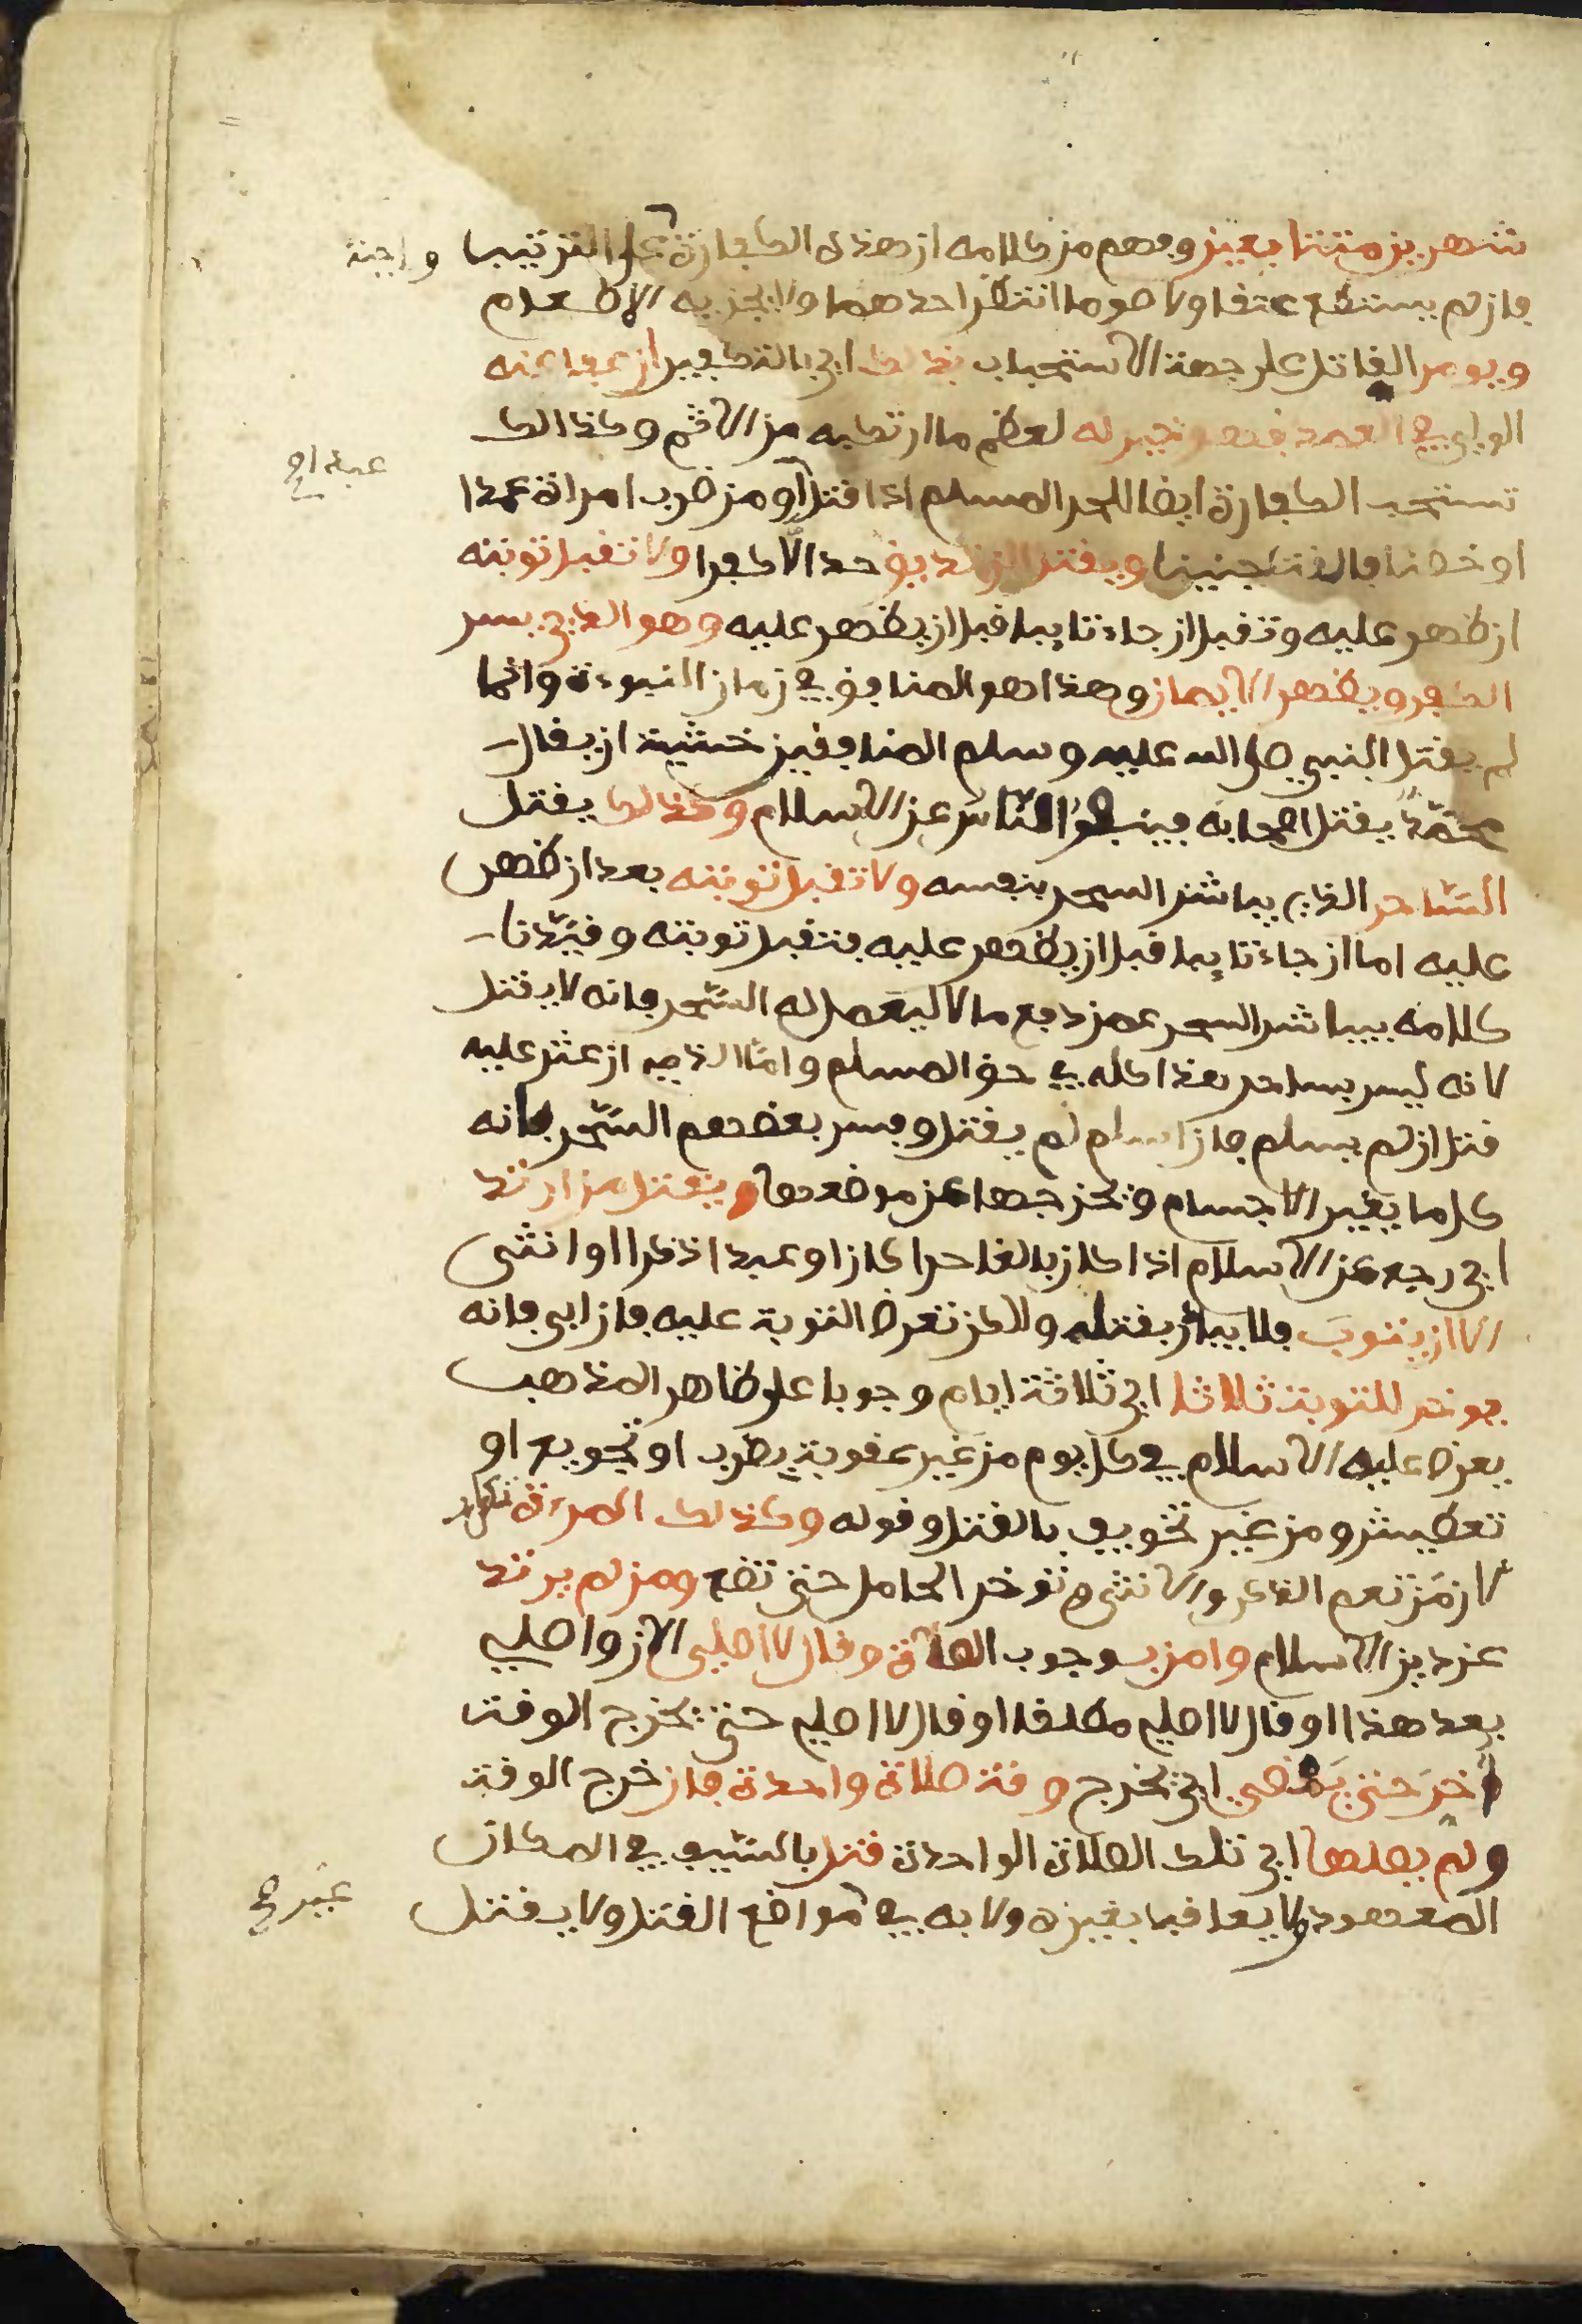 شهرين متتابعين وفهم من كلامه ان هذه الكفارة على الترتيب واجبة
فان لم يستطع عتقا ولا صوما انتظر احدهما ولا يجزيه الاطعام
ويومر القاتل على جهة الاستحباب بذلك اي بالتكفير ان عفا عنه
الولي في العمد فهو خير له لعظم ما ارتكبه من الاثم وكذالك
تستحب الكفارة ايضا للحر المسلم اذا قتل او من ضرب امراة عمدا
عبدا
او خطئا فالقت جنينا ويقتل الزنديق حدا لا كفرا ولا تقبل توبته
ان ظهر عليه وتقبل ان جاء تايبا قبل ان يظهر عليه وهو الذي يسر
الكفر ويظهر الايمان وهذا هو المنافق في زمان النبوءة وانما
لم يقتل النبي صلى الله عليه وسلم المنافقين خشية ان يقال
محمد يقتل اصحابه فينفر الناس عن الاسلام وكذلك يقتل
الساحر الذي يباشر السحر بنفسه ولا تقبل توبته بعد ان ظهر
عليه اما ان جاء تايبا قبل ان يظهر عليه فتقبل توبته وقيدنا
كلامه بيباشر السحر عمن دفع مالا ليعمل له السحر فانه لا يقتل
لانه ليس بساحر هذا كله في حق المسلم واما الذمي ان عثر عليه
قتل ان لم يسلم فان اسلم لم يقتل وفسر بعضهم السحر بانه
كل ما يغير الاجسام ويخرجها عن موضعها ويقتل من ارتد
اي رجع عن الاسلام اذا كان بالغا حرا كان او عبدا ذكرا او انثى
الا ان يتوب فلا يبادر بقتله ولاكن تعرض التوبة عليه فان ابى فانه
يوخر للتوبة ثلاثا اي ثلاثة ايام وجوبا على ظاهر المذهب
يعرض عليه الاسلام في كل يوم من غير عقوبة بضرب او تجويع او
تعطيش ومن غير تخويف بالقتل وقوله وكذلك المرءة تكرار
لان من تعم الذكر والانثى وتوخر الحامل حتى تضع ومن لم يرتد
عن دين الاسلام وامن بوجوب الصلاة وقال لا اصلي الان واصلي
بعد هذا او قال لا اصلي مطلقا او قال لا اصلي حتى يخرج الوقت
اخر حتى يمضي اي يخرج وقت صلاة واحدة فان خرج الوقت
ولم يصلها اي تلك الصلاة الواحدة قتل بالسيف في المكان
المعهود ولا يعاقب بغيره ولا به في مواضع القتل ولا يقتل
غير